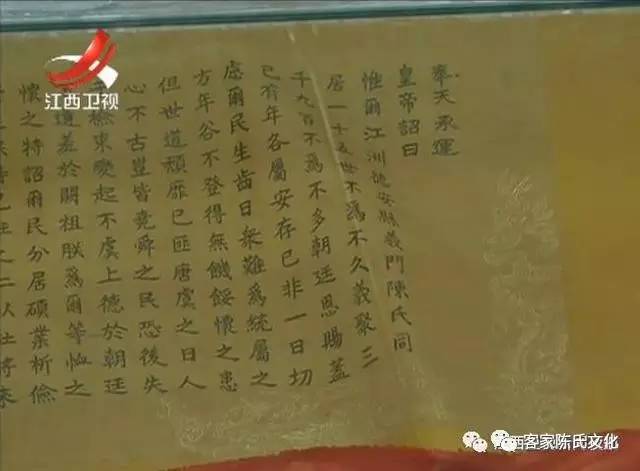 奉天承運
皇帝詔曰
惟爾江洲德安縣義門陳氏同
居一十五世不爲不久義聚三
千九百不爲不多朝廷恩賜蓋
已有年各屬安存已非一日切
慮爾民生齒日衆難爲統屬之
方年谷不登得無饑餒懷之患
但世道頹靡已匪唐虞之日人
心不古豈皆堯舜之民恐後失
檢束變起不虞上德於朝廷
遺羞於開祖朕爲爾等恤之
懷之特詔爾民分居碩業析儉
將來
江西卫视
客家陈氏文化